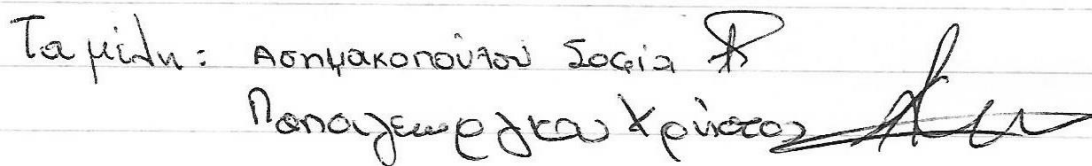 Τα μέλη: Ασημακοπούλου Σοφία
Παπαγεωργίου Χρήστος